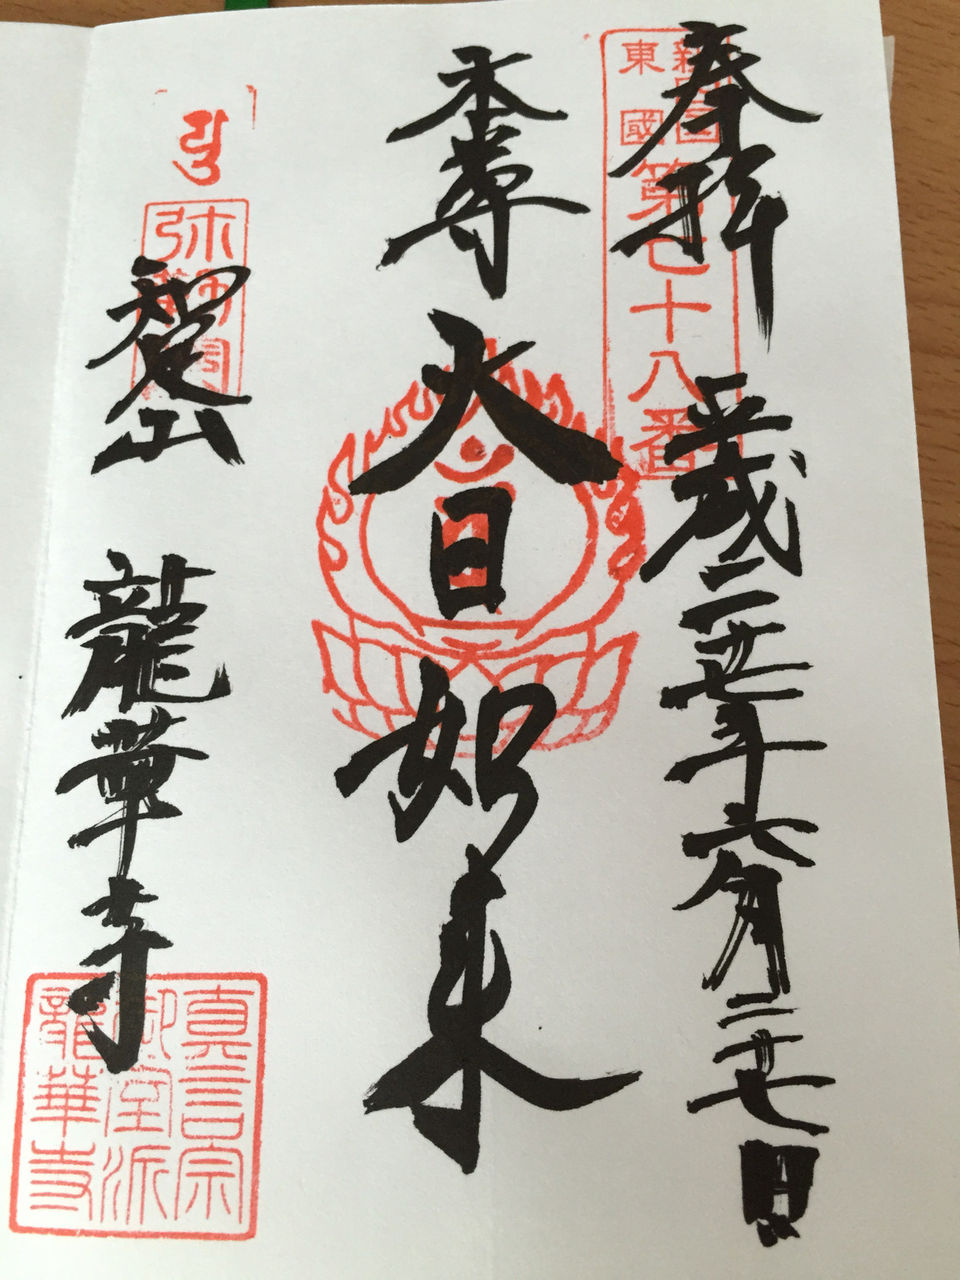 奉拝 平成二十七年六月二十七日
東國
第七十八番
本尊 大日如来
弥
知足山 龍華寺
真言宗
御室派
龍華寺